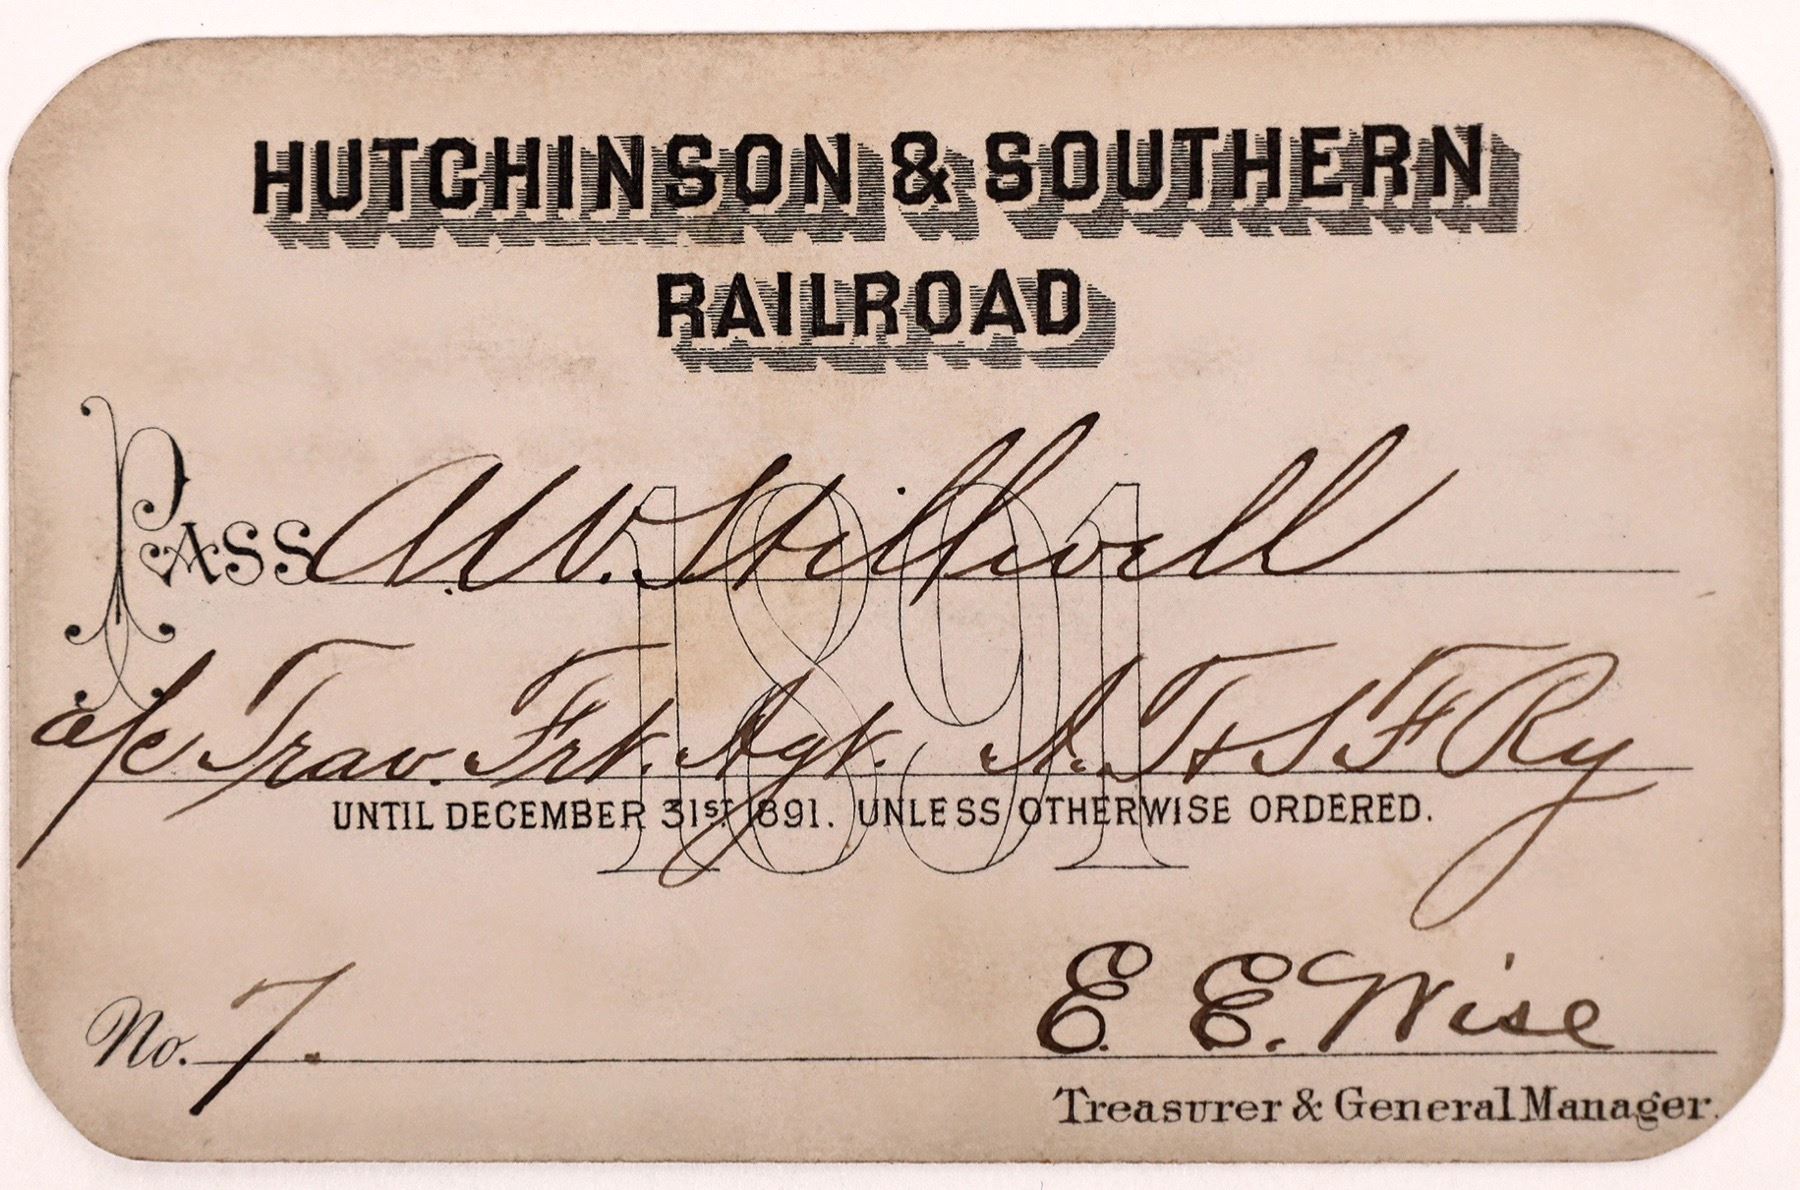 HUTCHINSON & SOUTHERN
RAILROAD
1891
PASS A.W. Stillwell
a/c Trav. Frt. Agt. A. T & S F Ry
UNTIL DECEMBER 31ST 1891. UNLESS OTHERWISE ORDERED.
No. 7.
E. E. Wise
Treasurer & General Manager.